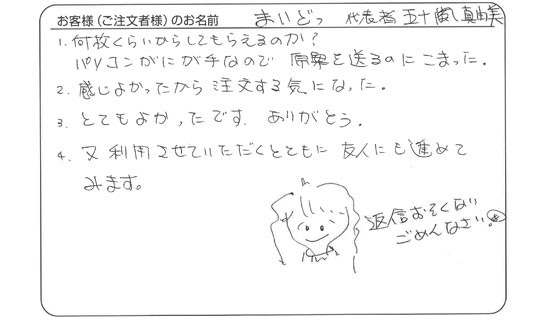 お客様（ご注文者様）のお名前 まいどっ 代表者 五十嵐真由美
1. 何枚くらいからしてもらえるのか？
パソコンがにが手なので 原案を送るのにこまった。
2. 感じよかったから注文する気になった。
3. とてもよかったです。ありがとう。
4. 又利用させていただくとともに 友人にも進めて
みます。
返信おそくなり
ごめんなさい。